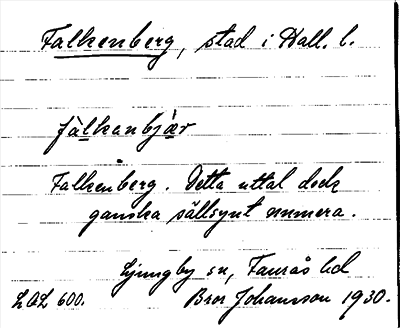 Falkenberg, stad i Hall. l.
fàlkanbjær
Falkenberg. Detta uttal dock
ganska sällsynt numera.
Ljungby sn, Faurås hd
LAL 600. Bror Johansson 1930.